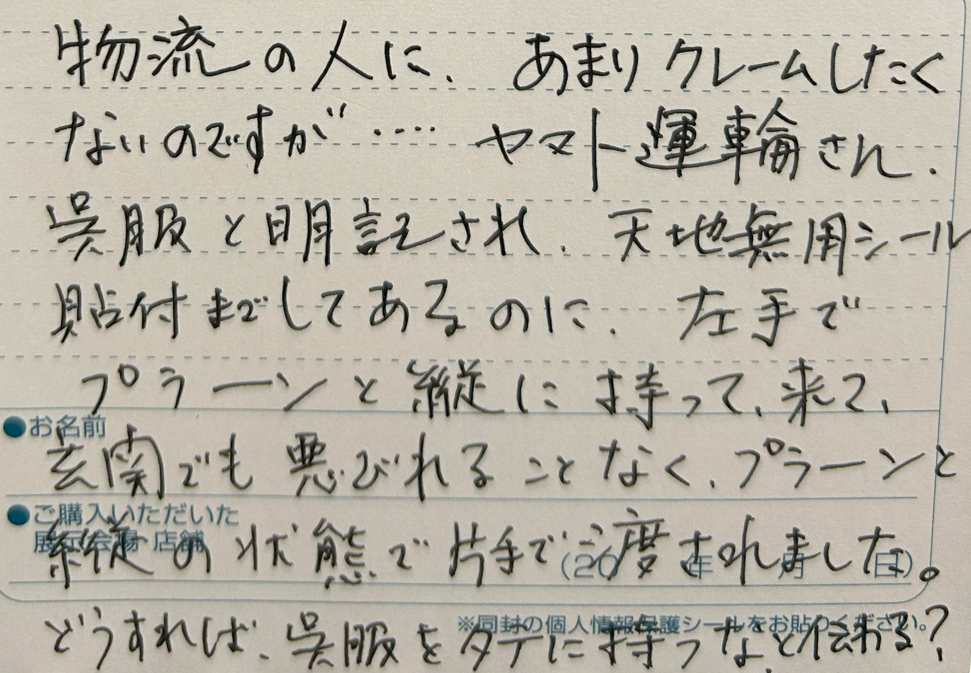 物流の人に、あまりクレームしたく
ないのですが…‥ ヤマト運輸さん、
呉服と明記され、天地無用シール
貼付までしてあるのに、左手で
プラーンと縦に持って、来て、
●お名前
玄関でも悪びれることなく、プラーンと
●ご購入いただいた
展示会場・店舗
縦の状態で片手で渡されました。
(20 年 月 日)
※同封の個人情報保護シールをお貼りください。
どうすれば、呉服をタテに持つなと伝わる?